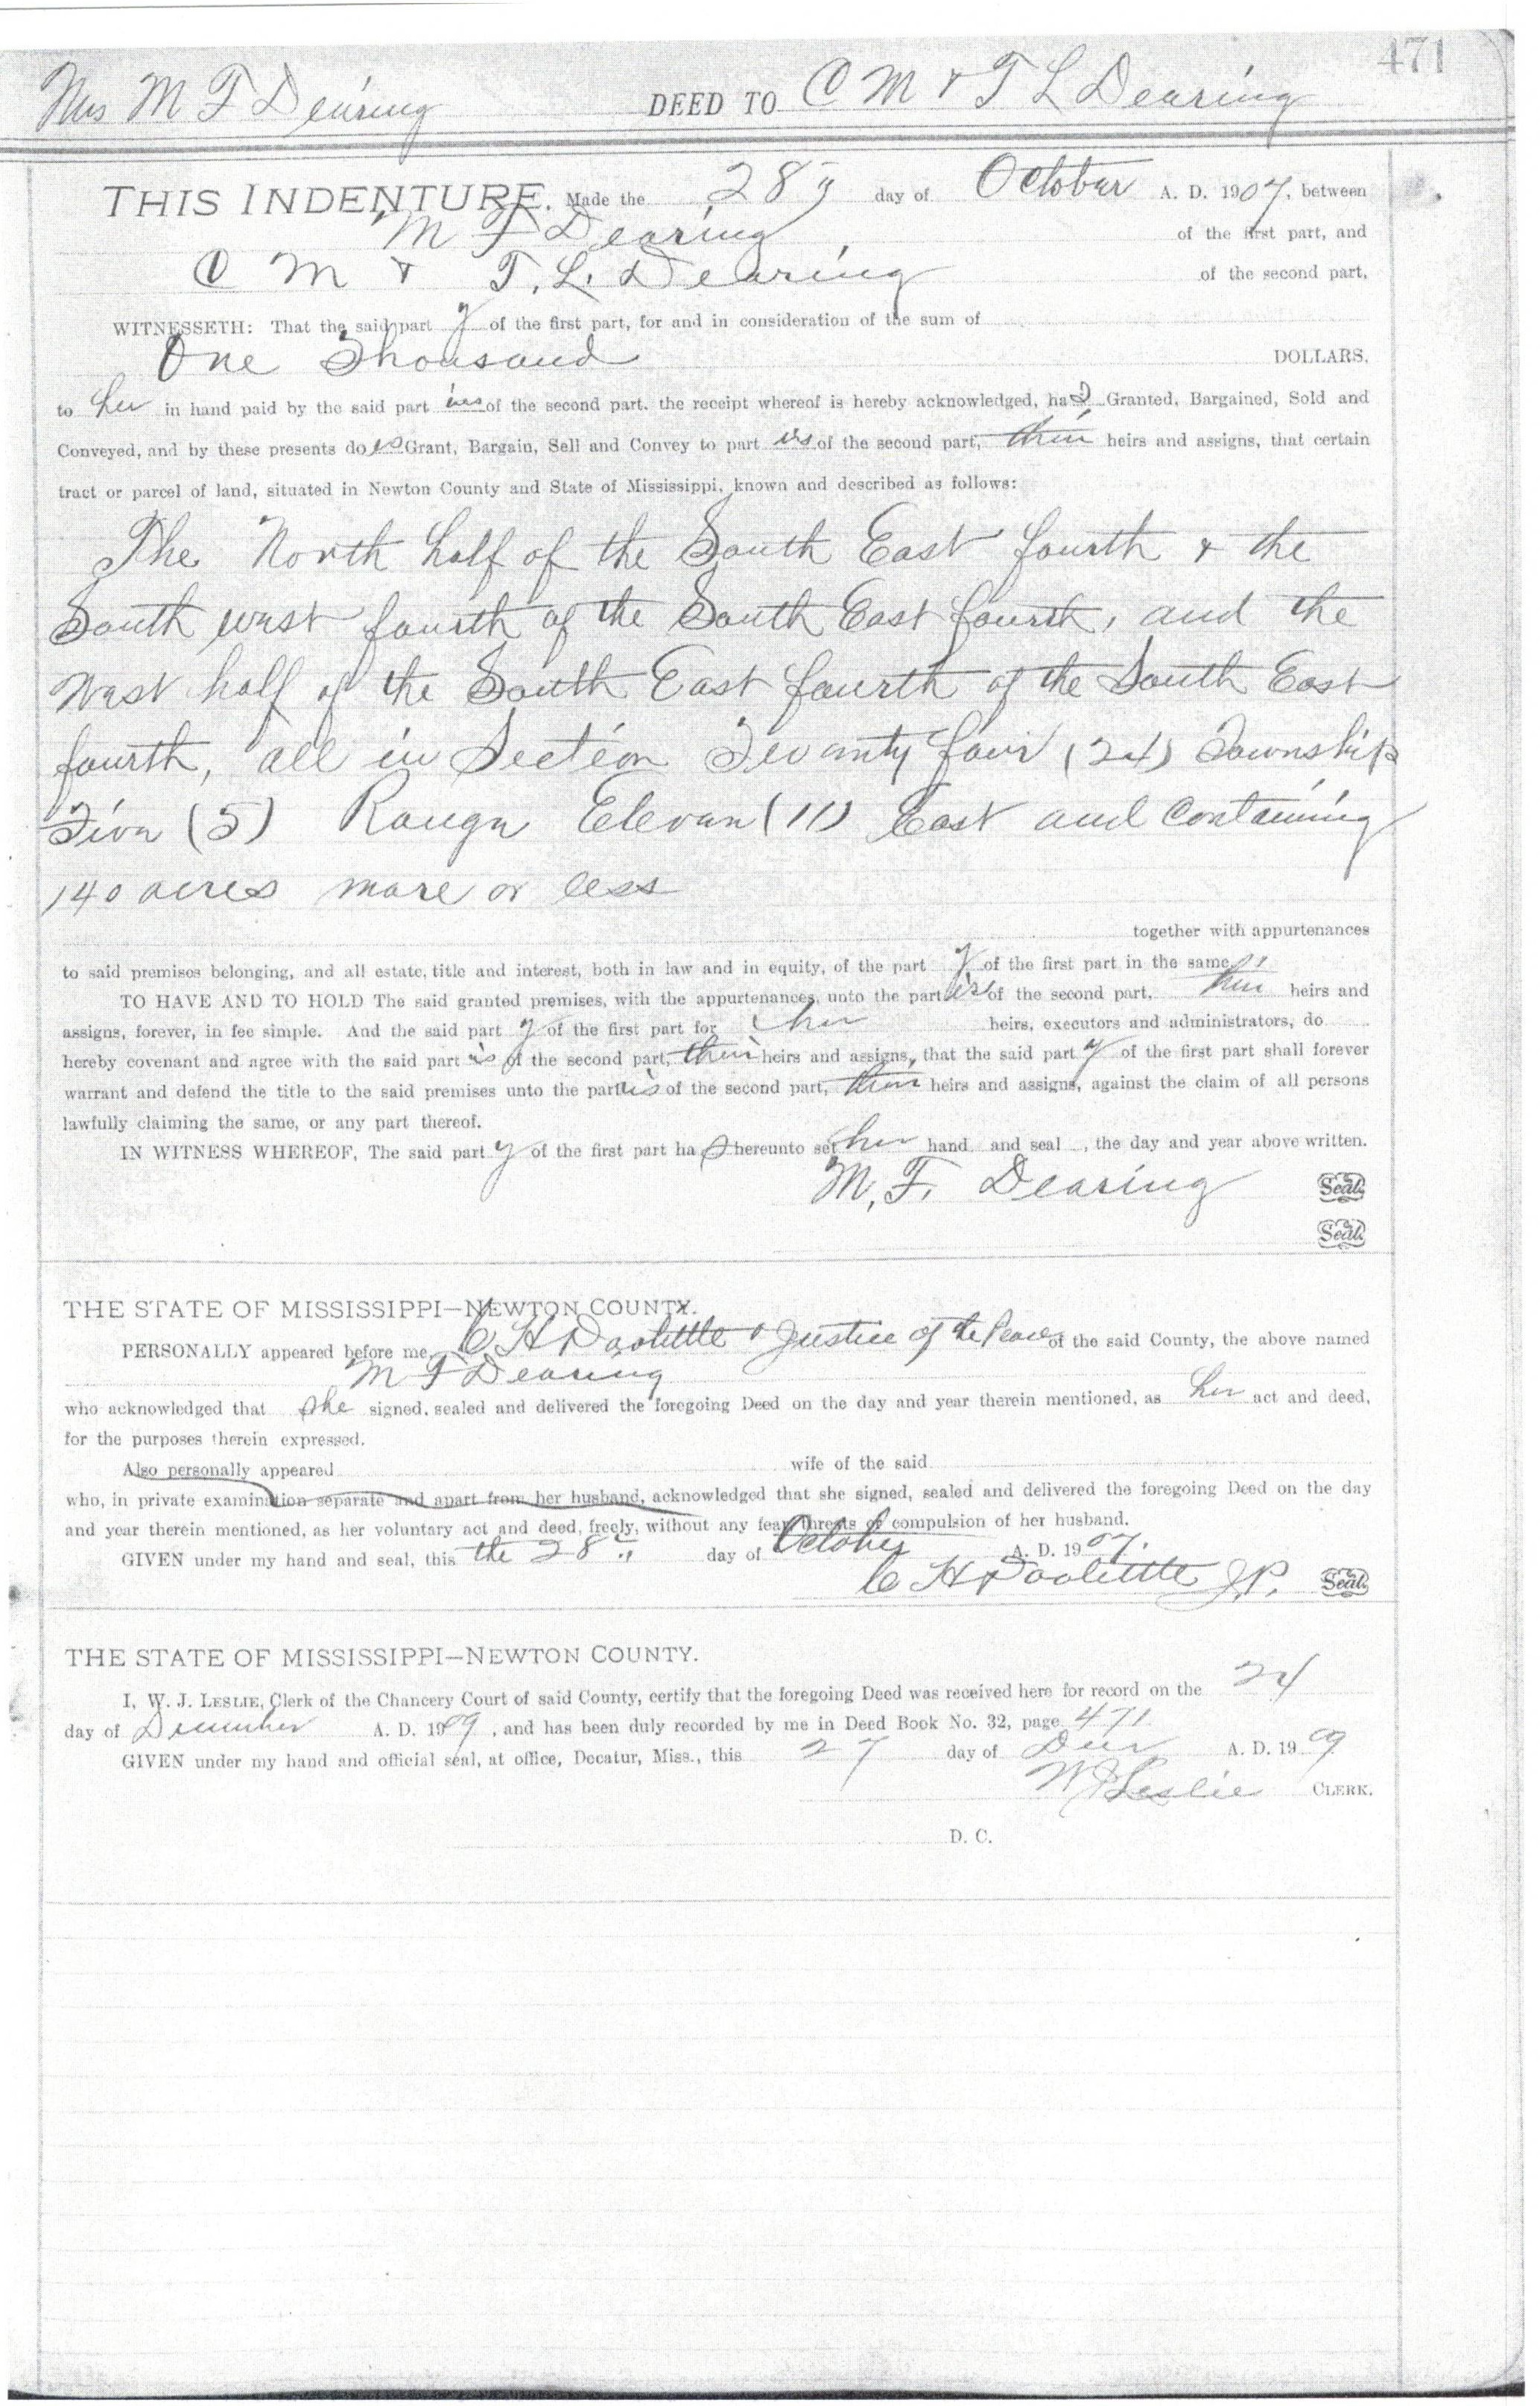 471
Mrs M F Dearing DEED TO C M & T L Dearing
THIS INDENTURE. Made the 28 day of October A. D. 1907, between
M F Dearing of the first part, and
C M & T. L. Dearing of the second part,
WITNESSETH: That the said part y of the first part, for and in consideration of the sum of
One Thousand DOLLARS.
to her in hand paid by the said part ies of the second part. the receipt whereof is hereby acknowledged, has Granted, Bargained, Sold and
Conveyed, and by these presents does Grant, Bargain, Sell and Convey to part ies of the second part, their heirs and assigns, that certain
tract or parcel of land, situated in Newton County and State of Mississippi, known and described as follows:
The North half of the South East fourth & the
South west fourth of the South East fourth, and the
West half of the South East fourth of the South East
fourth, all in Section Twenty four (24) Township
Five (5) Range Eleven (11) East and Containing
140 acres more or less
together with appurtenances
to said premises belonging, and all estate, title and interest, both in law and in equity, of the part y of the first part in the same.
TO HAVE AND TO HOLD The said granted premises, with the appurtenances, unto the part ies of the second part, their heirs and
assigns, forever, in fee simple. And the said part y of the first part for her heirs, executors and administrators, do
hereby covenant and agree with the said part is of the second part, their heirs and assigns, that the said part y of the first part shall forever
warrant and defend the title to the said premises unto the part ies of the second part, their heirs and assigns, against the claim of all persons
lawfully claiming the same, or any part thereof.
IN WITNESS WHEREOF, The said part y of the first part has hereunto set her hand and seal , the day and year above written.
M. F. Dearing Seal
Seal
THE STATE OF MISSISSIPPI—NEWTON COUNTY.
PERSONALLY appeared before me, C H Doolittle a Justice of the Peace of the said County, the above named
M F Dearing
who acknowledged that she signed, sealed and delivered the foregoing Deed on the day and year therein mentioned, as her act and deed,
for the purposes therein expressed.
Also personally appeared wife of the said
who, in private examination separate and apart from her husband, acknowledged that she signed, sealed and delivered the foregoing Deed on the day
and year therein mentioned, as her voluntary act and deed, freely, without any fear, threats or compulsion of her husband.
GIVEN under my hand and seal, this the 28 day of October A. D. 1907.
C H Doolittle J.P. Seal
THE STATE OF MISSISSIPPI—NEWTON COUNTY.
I, W. J. LESLIE, Clerk of the Chancery Court of said County, certify that the foregoing Deed was received here for record on the 24
day of December A. D. 1909, and has been duly recorded by me in Deed Book No. 32, page 471
GIVEN under my hand and official seal, at office, Decatur, Miss., this 27 day of Decr A. D. 1909
W J Leslie CLERK.
D. C.